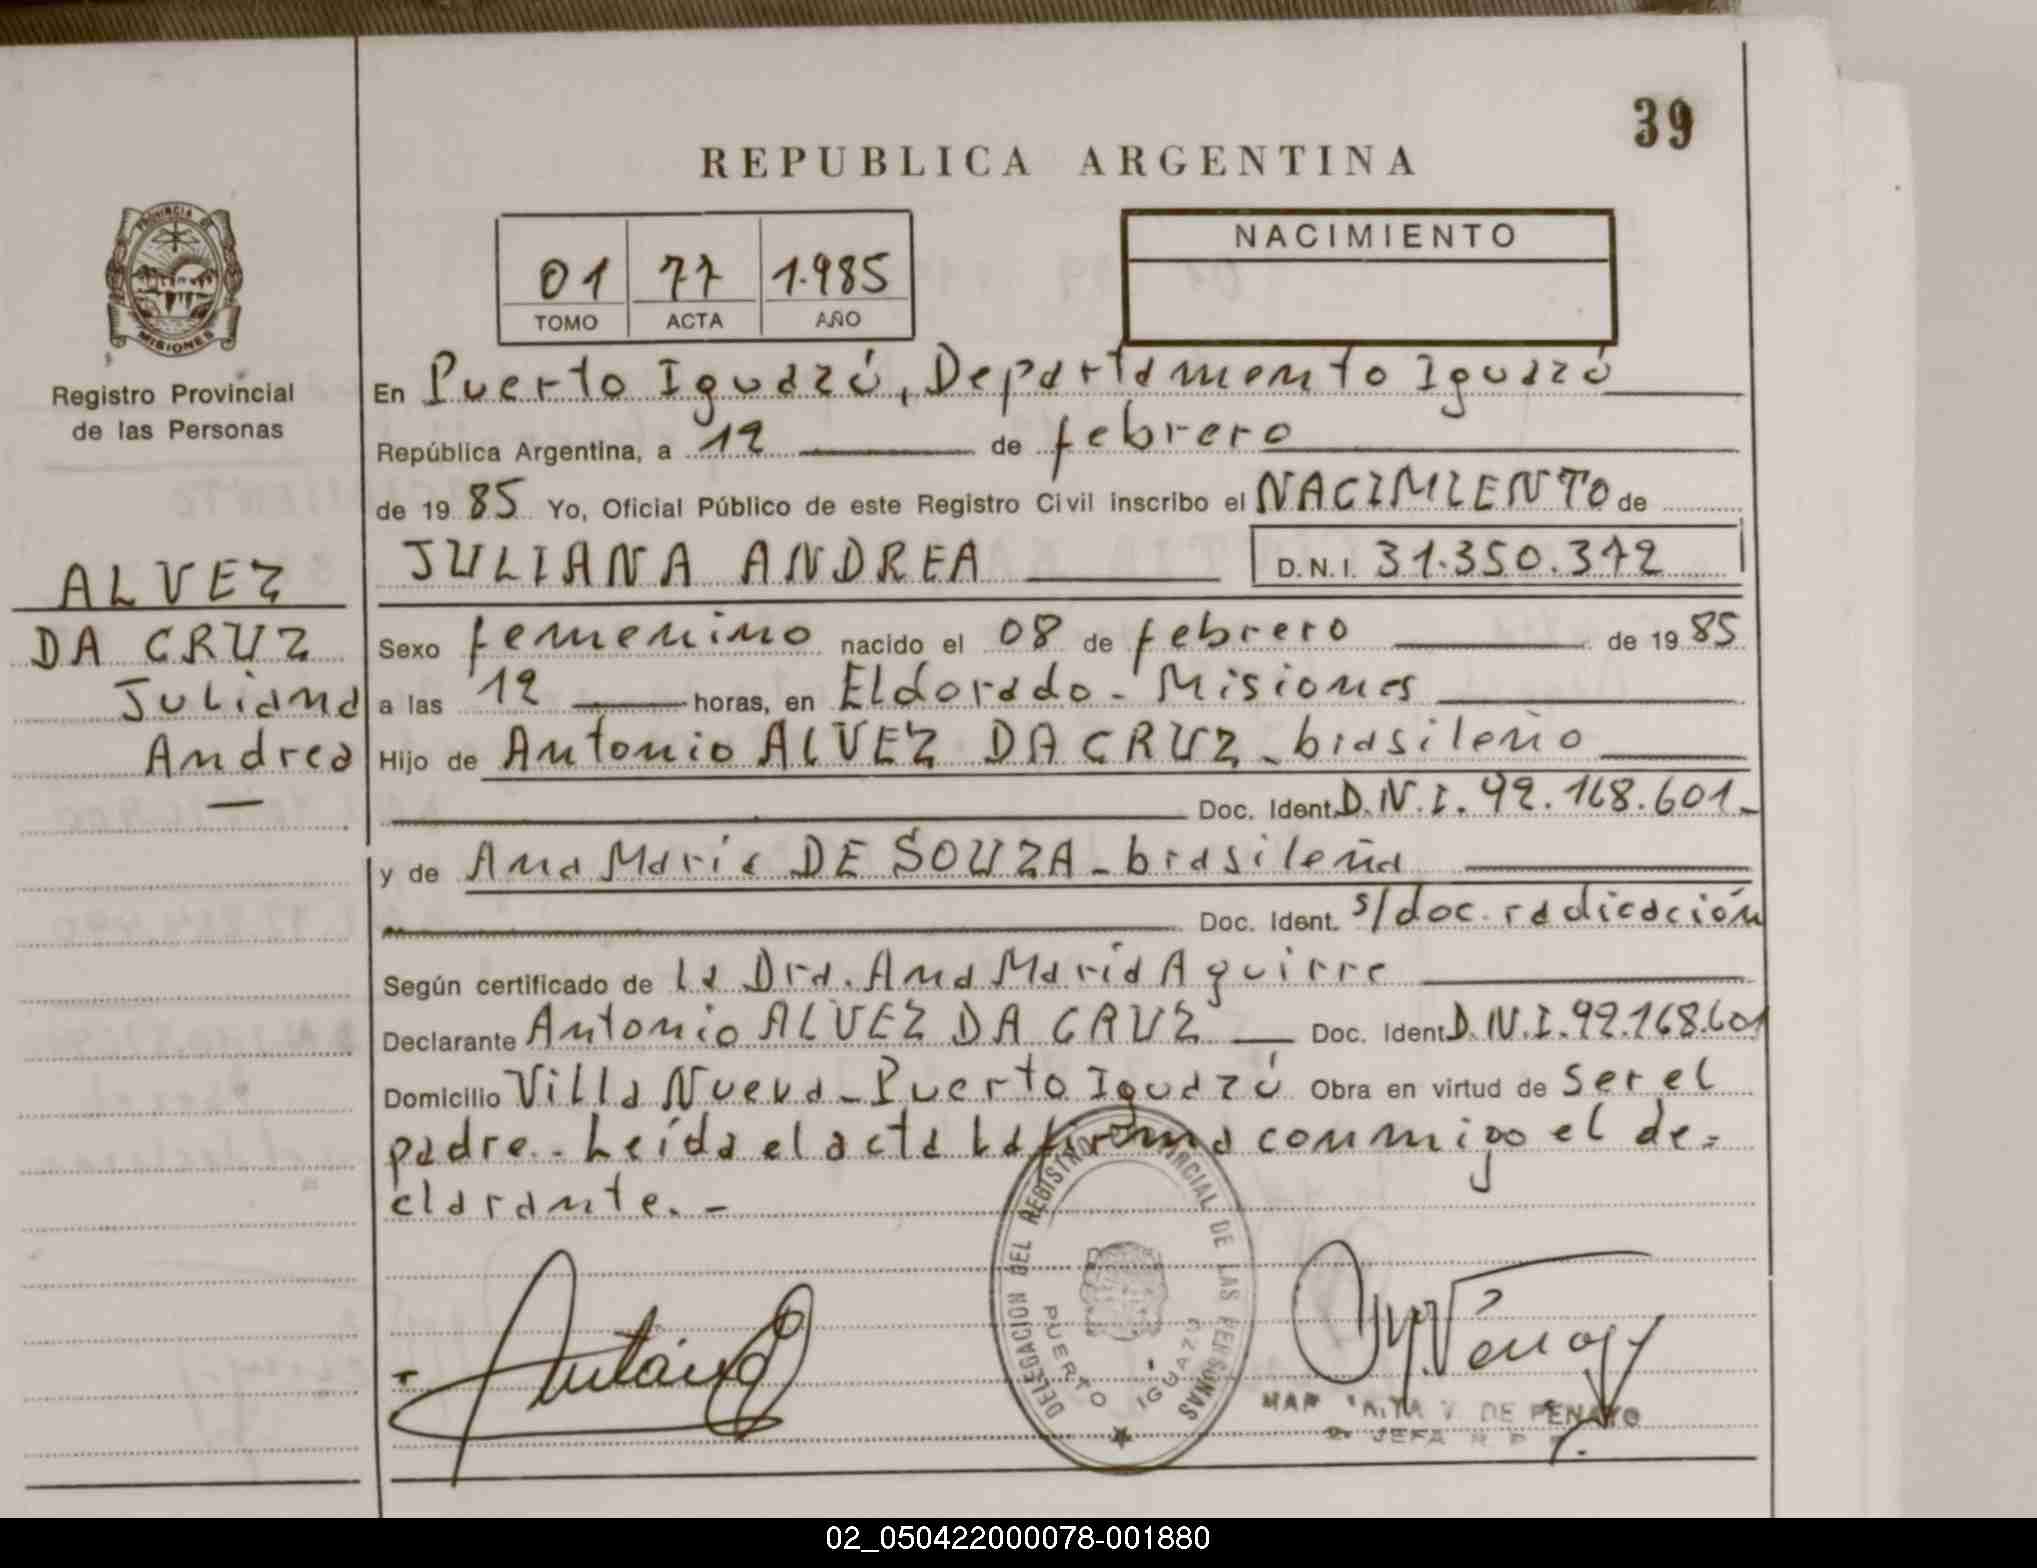 39
REPUBLICA ARGENTINA
PROVINCIA DE
MISIONES
Registro Provincial
de las Personas
01 77 1.985
TOMO ACTA AÑO
NACIMIENTO
En Puerto Iguazú, Departamento Iguazú
República Argentina, a 12 de febrero
de 1985 Yo, Oficial Público de este Registro Civil inscribo el NACIMIENTO de
JULIANA ANDREA D.N.I. 31.350.372
ALVEZ
DA CRUZ
Juliana
Andrea
Sexo femenino nacido el 08 de febrero de 1985
a las 12 horas, en Eldorado - Misiones
Hijo de Antonio ALVEZ DA CRUZ - brasileño
Doc. Ident. D.N.I. 92.168.601.-
y de Ana María DE SOUZA - brasileña
Doc. Ident. s/doc. radicación
Según certificado de la Dra. Ana María Aguirre
Declarante Antonio ALVEZ DA CRUZ Doc. Ident. D.N.I. 92.168.601
Domicilio Villa Nueva - Puerto Iguazú Obra en virtud de ser el
padre.- Leída el acta la firma conmigo el de=
clarante.-
DELEGACION DEL REGISTRO PROVINCIAL DE LAS PERSONAS
PUERTO IGUAZU
V. DE PENAYO
JEFA
02_050422000078-001880